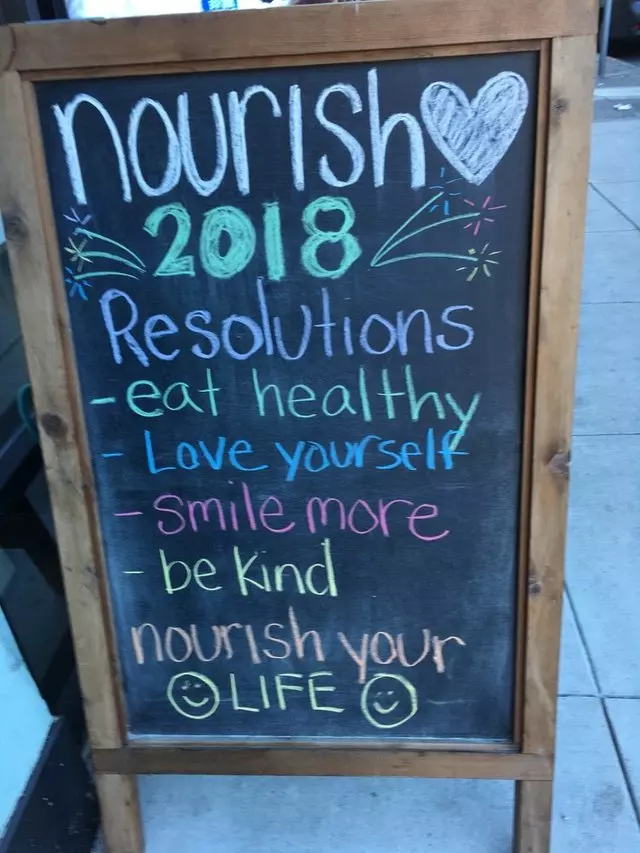 nourish
2018
Resolutions
- eat healthy
- Love yourself
- smile more
- be kind
nourish your
LIFE